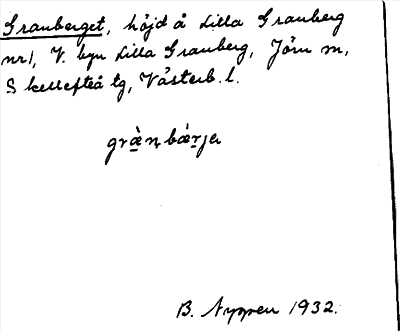 Granberget, höjd å Lilla Granberg
nr 1, V. byn Lilla Granberg, Jörn sn,
Skellefteå tg, Västerb. l.
græ̀nbæ̀rjeɹ
B. Nygren 1932.